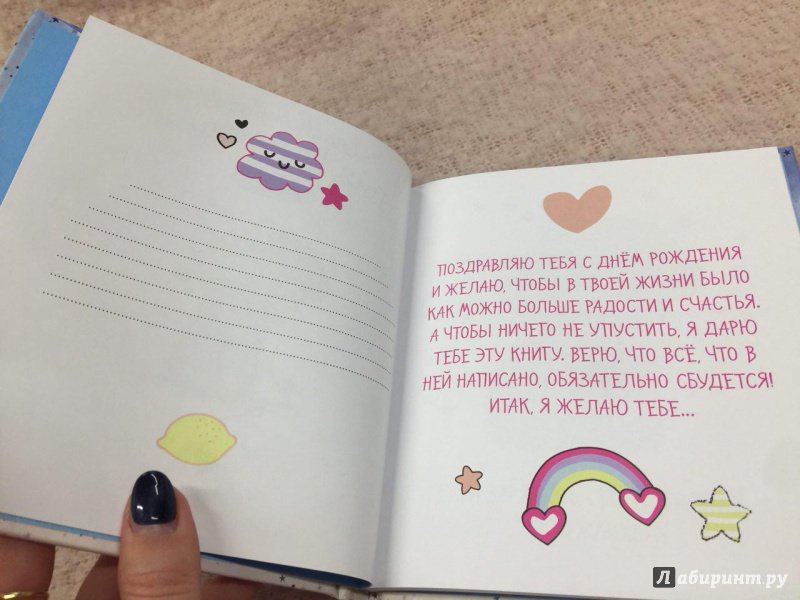 ПОЗДРАВЛЯЮ ТЕБЯ С ДНЁМ РОЖДЕНИЯ
И ЖЕЛАЮ, ЧТОБЫ В ТВОЕЙ ЖИЗНИ БЫЛО
КАК МОЖНО БОЛЬШЕ РАДОСТИ И СЧАСТЬЯ.
А ЧТОБЫ НИЧЕГО НЕ УПУСТИТЬ, Я ДАРЮ
ТЕБЕ ЭТУ КНИГУ. ВЕРЮ, ЧТО ВСЁ, ЧТО В
НЕЙ НАПИСАНО, ОБЯЗАТЕЛЬНО СБУДЕТСЯ!
ИТАК, Я ЖЕЛАЮ ТЕБЕ...
Лабиринт.ру